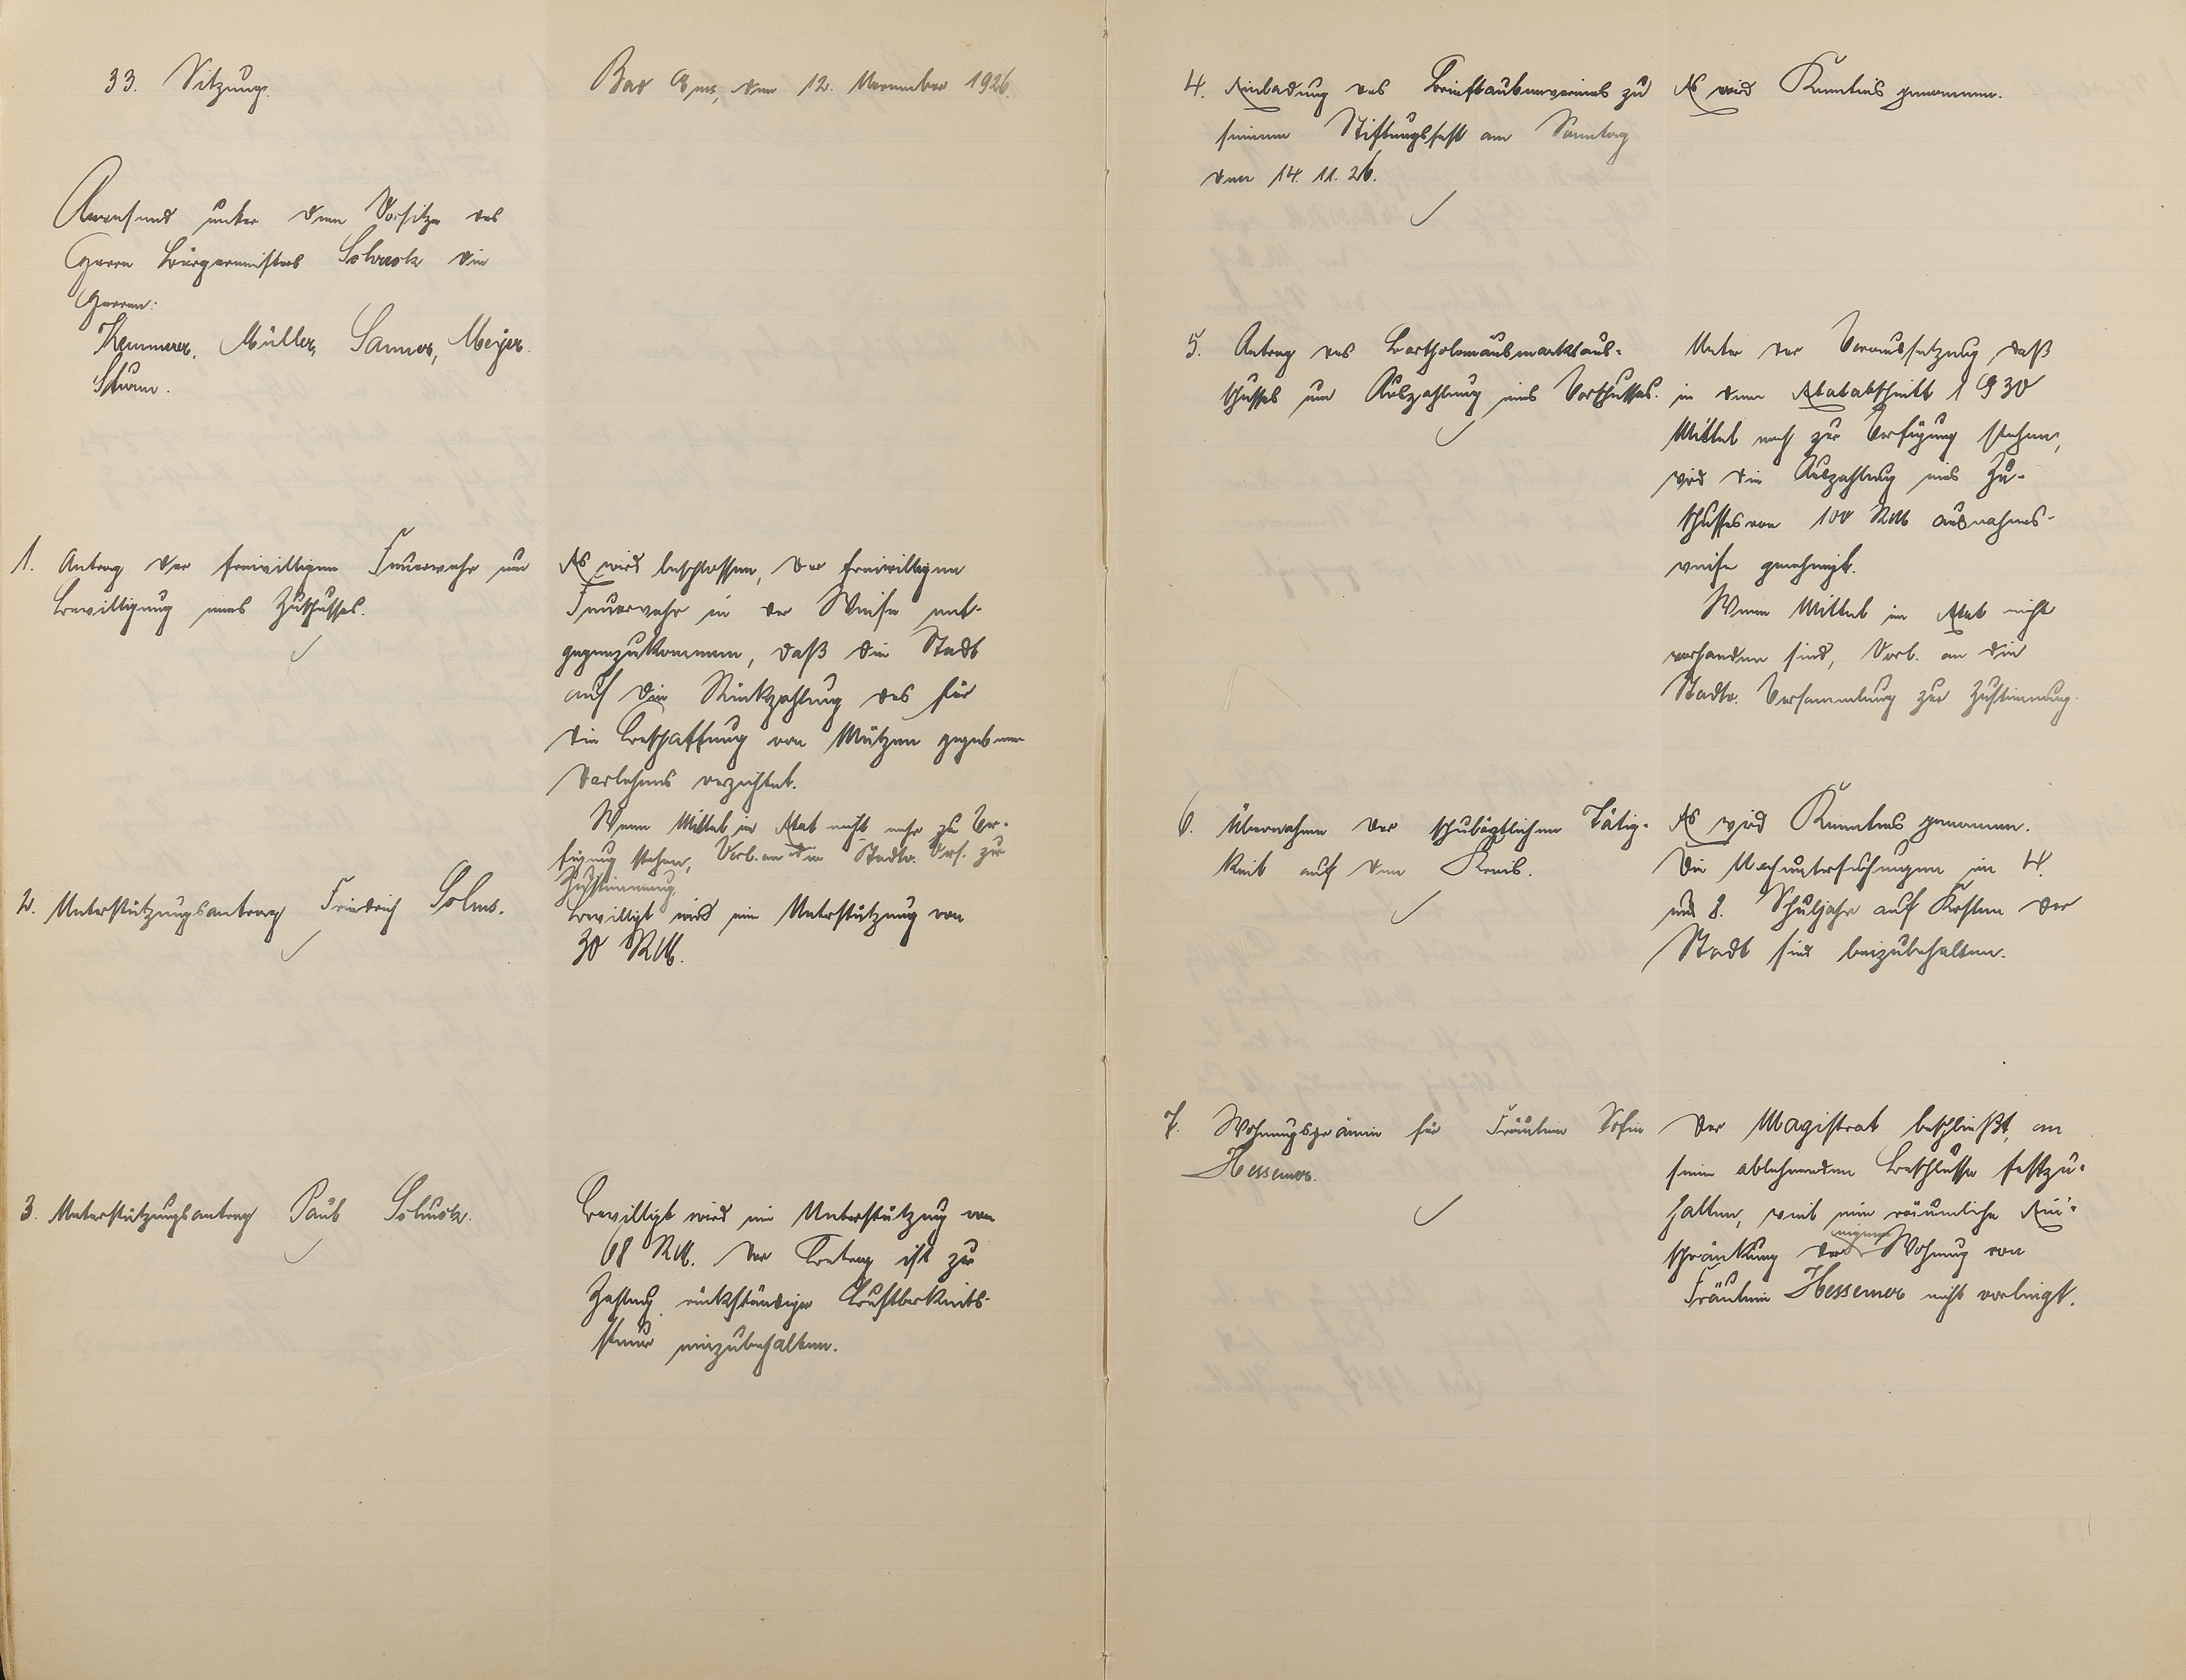 33. Sitzung.
Bad Ems, den 12. November 1926.
Anwesend unter dem Vorsitze des
Herrn Bürgermeisters Schrock die
Herren:
Kemmerer, Müller, Sanner, Meyer
Sturm.
1. Antrag der freiwilligen Feuerwehr um
Bewilligung eines Zuschusses.
Es wird beschlossen, der freiwilligen
Feuerwehr in der Weise ent-
gegenzukommen, daß die Stadt
auf die Rückzahlung des für
die Beschaffung von Mützen gegebenen
Darlehens verzichtet.
Wenn Mittel im Etat nicht mehr zu Ver-
fügung stehen, Vorl. an die Stadtv. Vers. zur
Zustimmung.
2. Unterstützungsantrag Friedrich Solms.
Bewilligt wird eine Unterstützung von
30 RM.
3. Unterstützungsantrag Paul
Bewilligt wird eine Unterstützung von
68 RM. Der Betrag ist zur
Zahlung rückständiger Lustbarkeits-
steuer einzubehalten.
4. Einladung des Brieftaubenvereins zu
seinem Stiftungsfest am Sonntag
den 14. 11. 26.
Es wird Kenntnis genommen.
5. Antrag des Bartholomäusmarktaus-
schusses um Auszahlung eines Vorschusses.
Unter der Voraussetzung, daß
in dem Etatabschnitt 1 930
Mittel noch zur Verfügung stehen,
wird die Auszahlung eines Zu-
schusses von 100 RM ausnahms-
weise genehmigt.
Wenn Mittel im Etat nicht
vorhanden sind, Vorl. an die
Stadtv. Versammlung zur Zustimmung.
6. Übernahme der schulärztlichen Tätig-
keit auf den Kreis.
Es wird Kenntnis genommen.
Die Nachuntersuchungen im 4.
und 8. Schuljahr auf Kosten der
Stadt sind beizubehalten.
7. Wohnungsprämie für Fräulein Sofie
Hessemer.
Der Magistrat beschließt, an
seinem ablehnenden Beschlusse festzu-
halten, weil eine räumliche Ein-
schränkung der eigenen Wohnung von
Fräulein Hessemer nicht vorliegt.